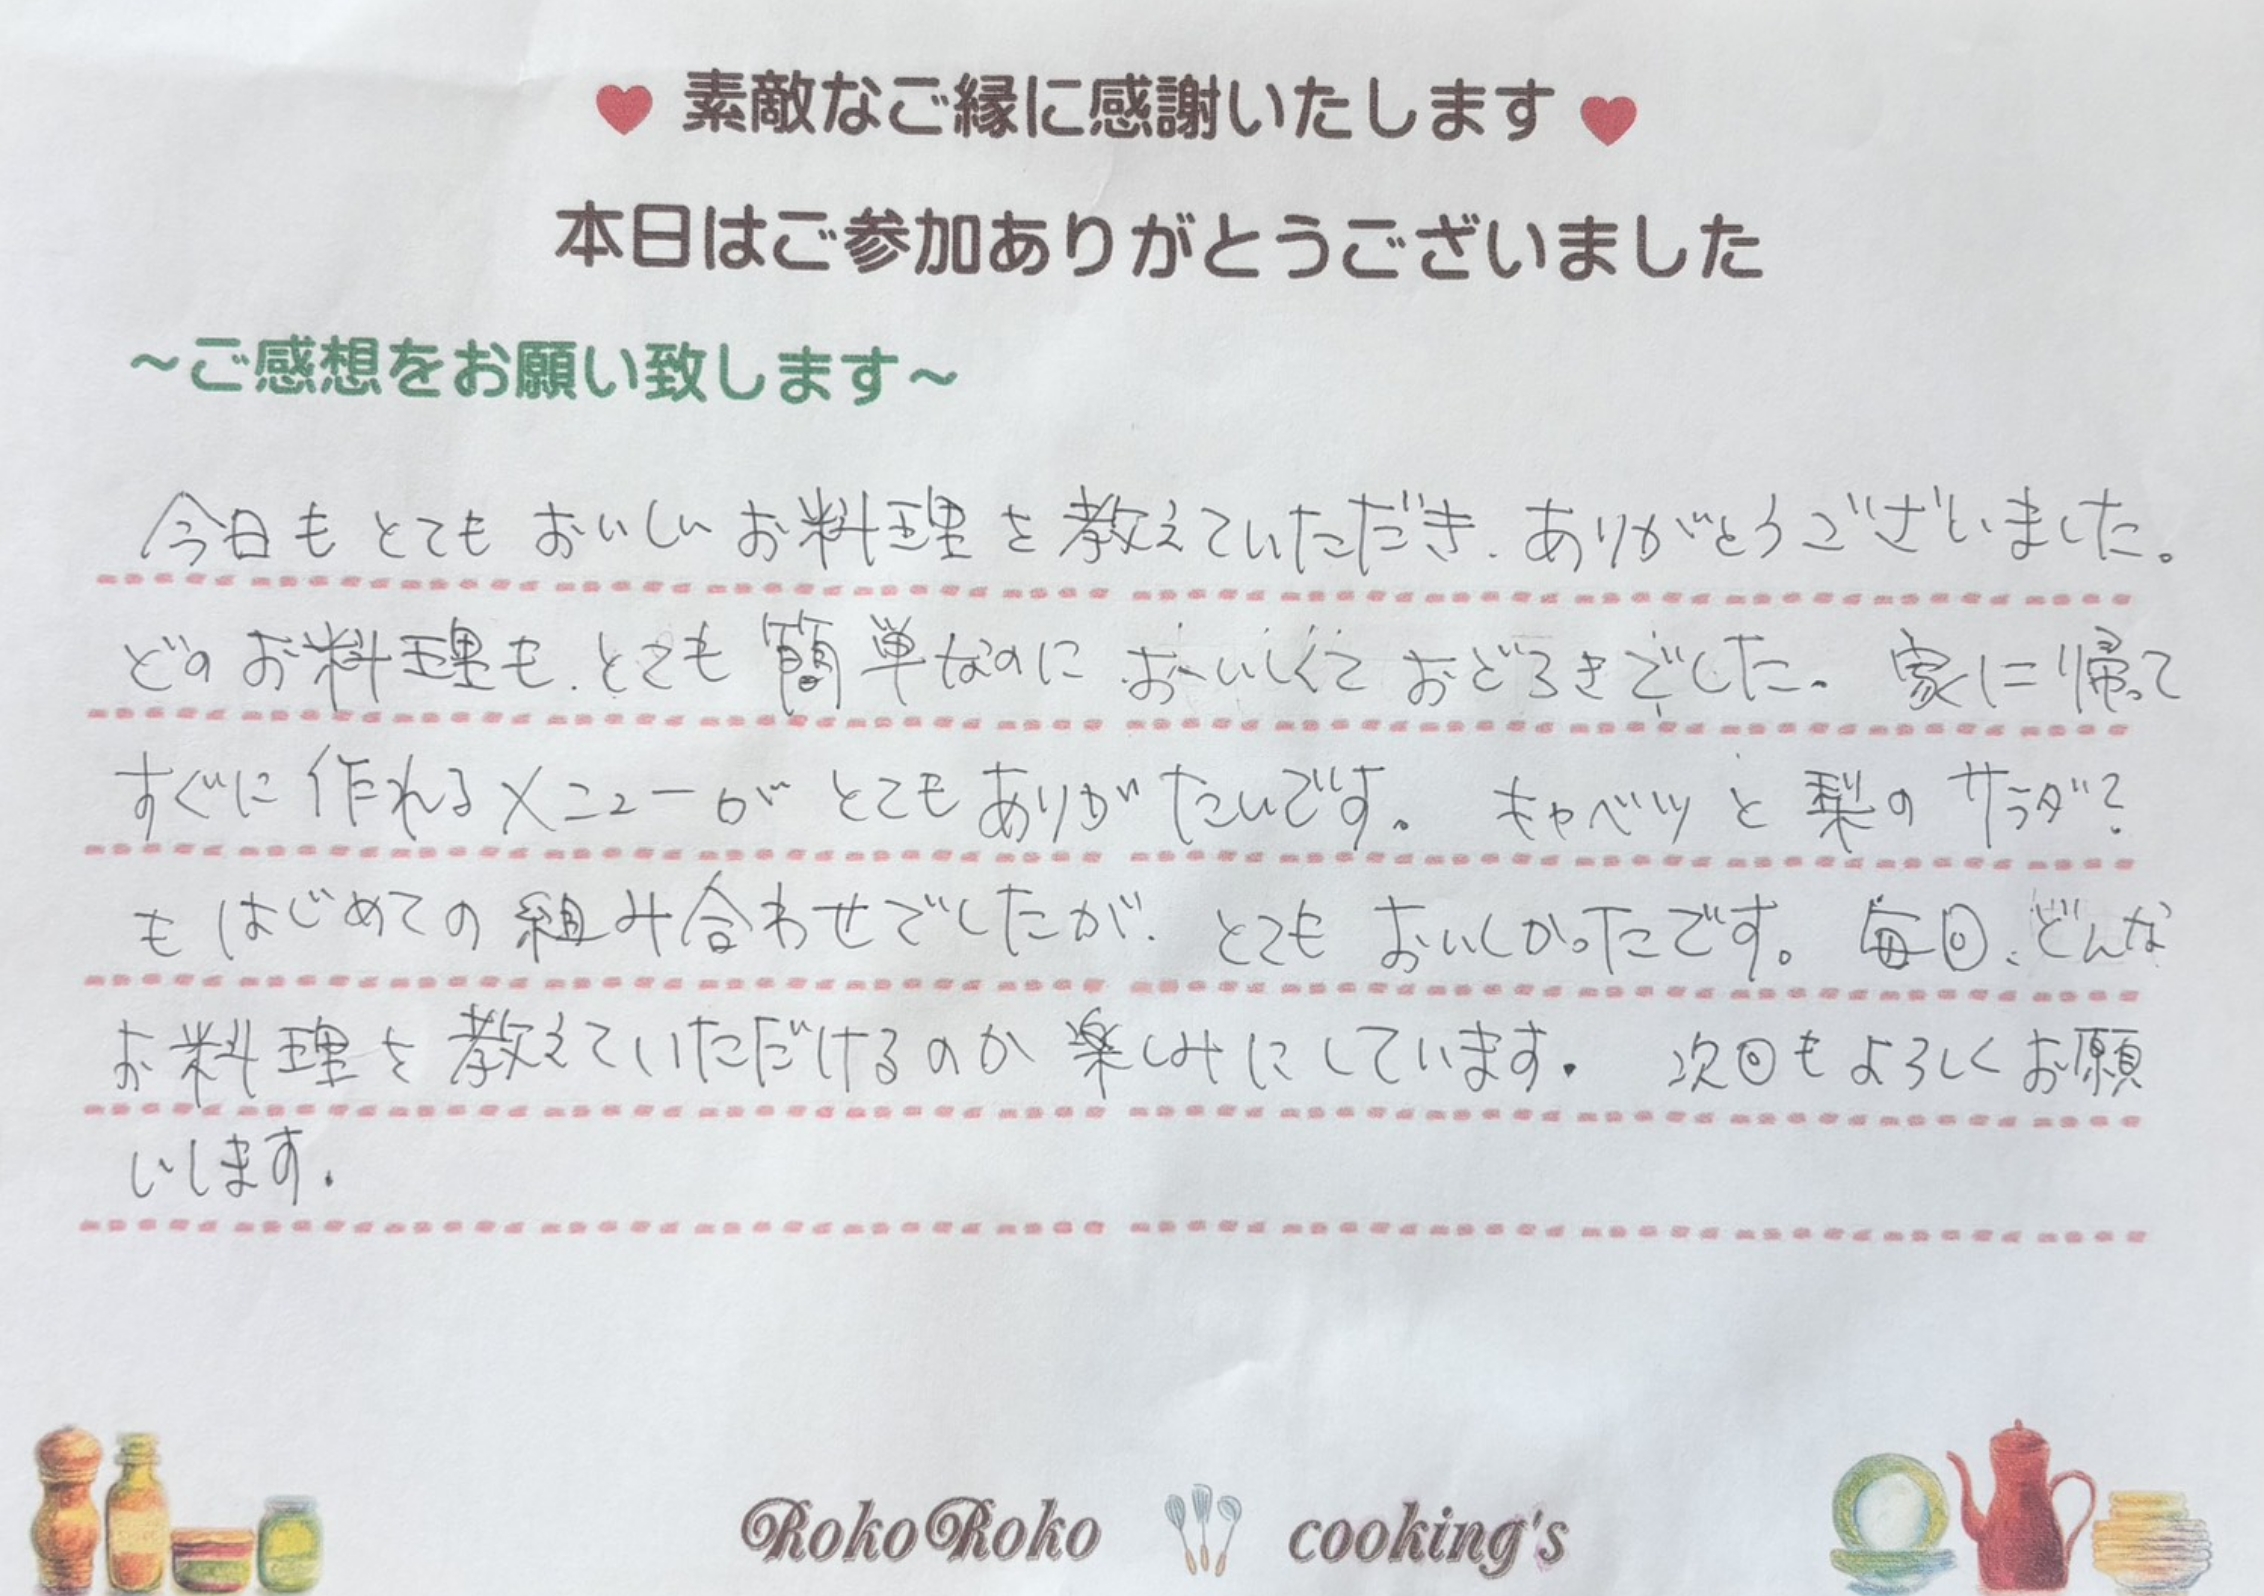 ♥ 素敵なご縁に感謝いたします ♥
本日はご参加ありがとうございました
～ご感想をお願い致します～
今日もとてもおいしいお料理を教えていただき、ありがとうございました。
どのお料理も、とても簡単なのにおいしくておどろきでした。家に帰って
すぐに作れるメニューがとてもありがたいです。キャベツと梨のサラダ?
もはじめての組み合わせでしたが、とてもおいしかったです。毎回、どんな
お料理を教えていただけるのか楽しみにしています。次回もよろしくお願
いします。
RokoRoko cooking's